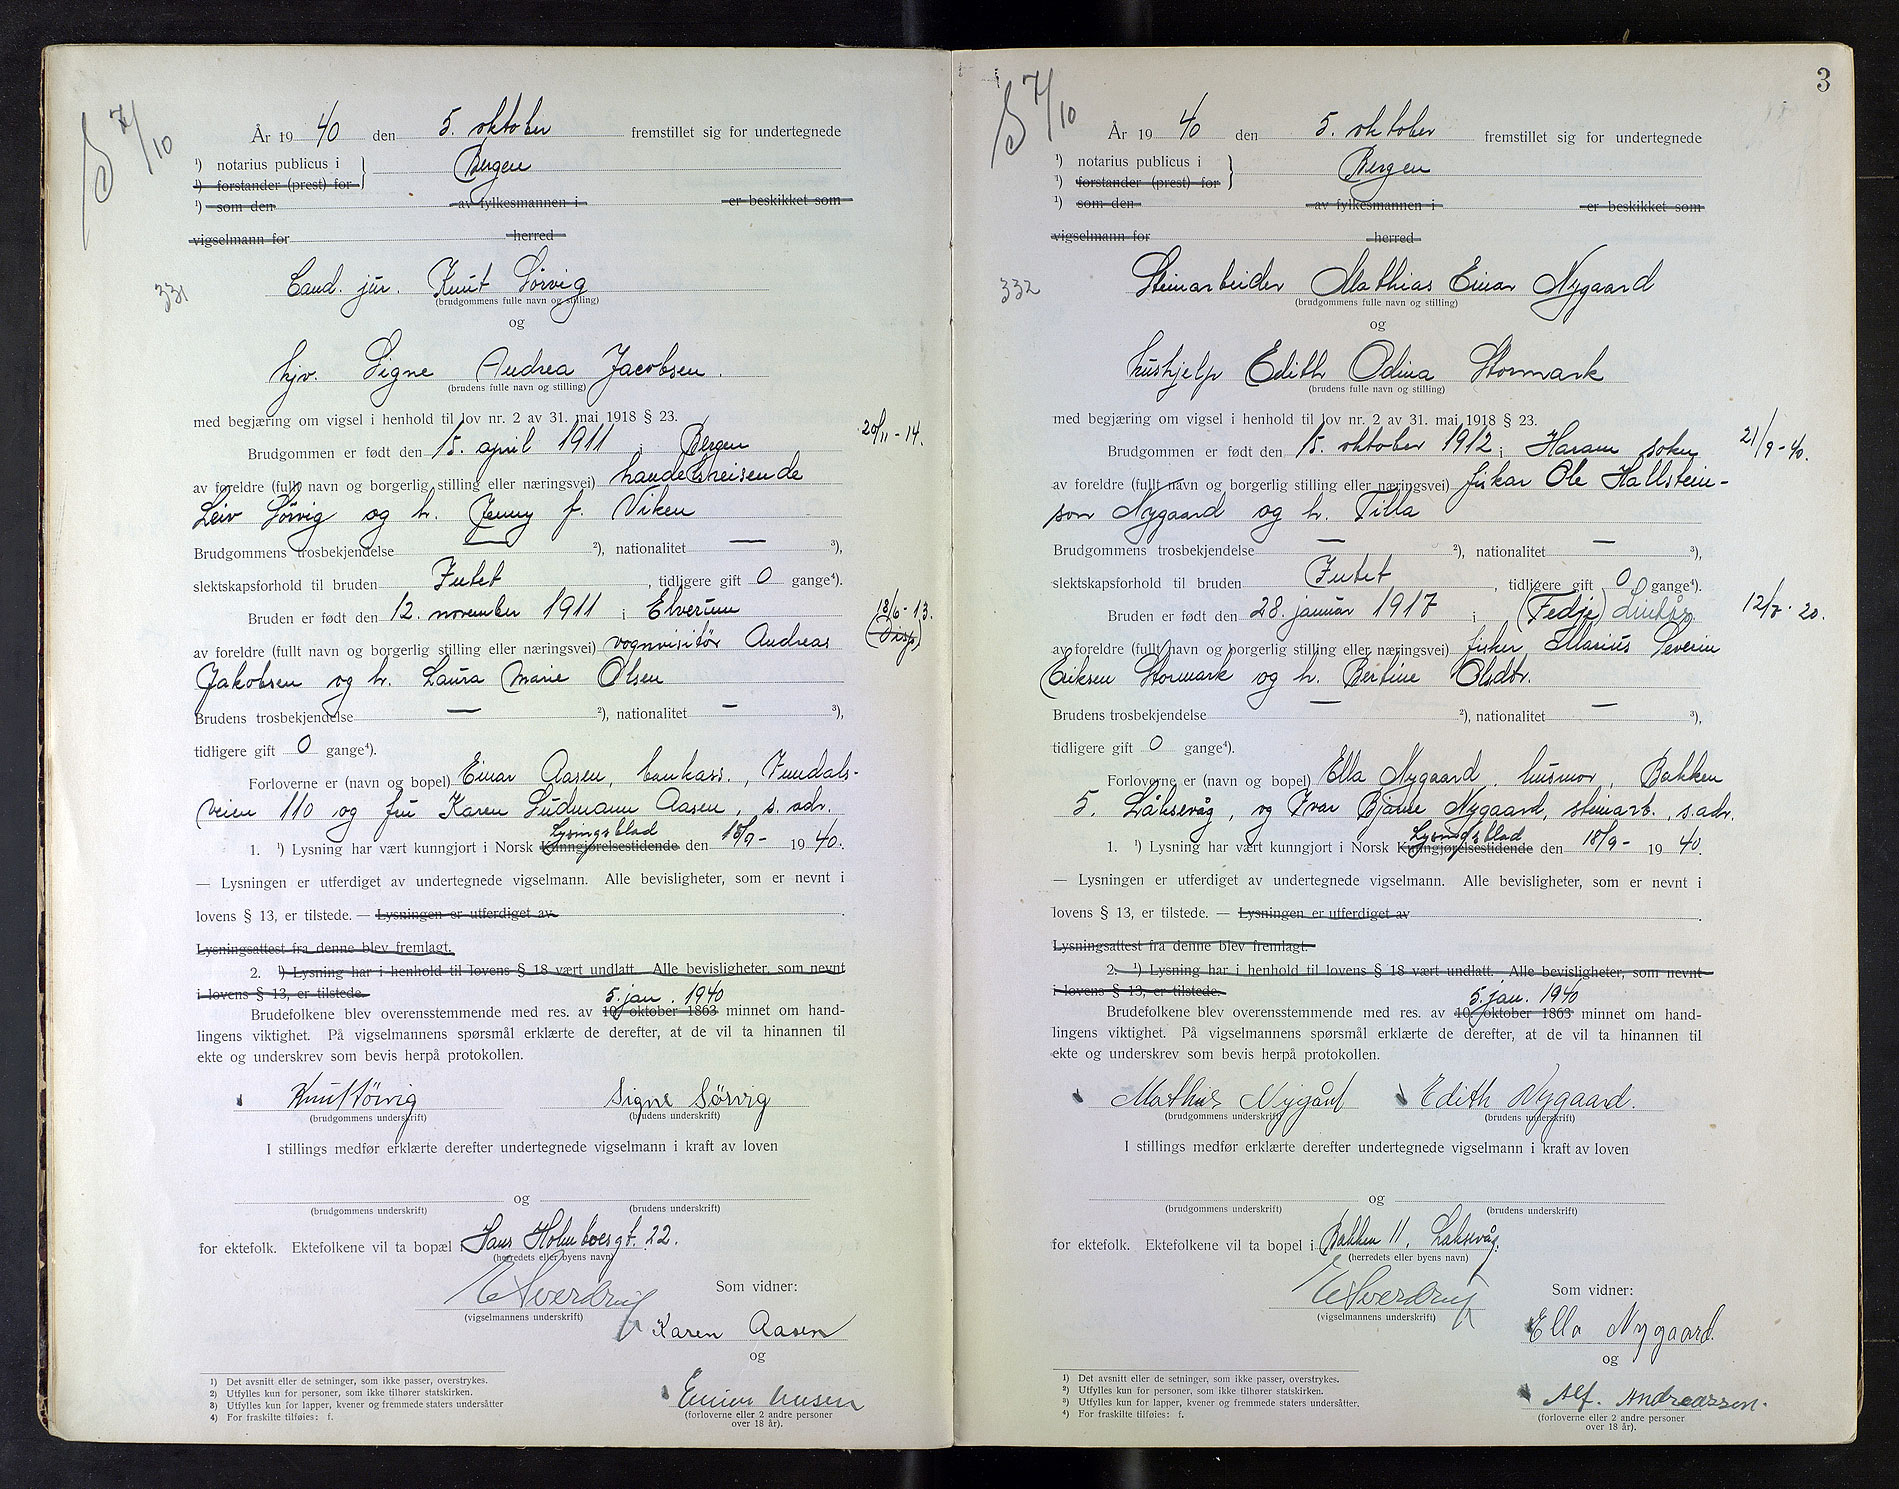 S 7/10
År 1940 den 5. oktober fremstillet sig for undertegnede
¹) notarius publicus i } Bergen
¹) forstander (prest) for
¹) som den av fylkesmannen i er beskikket som
vigselmann for herred
331
Cand. jur. Knut Sörvig
(brudgommens fulle navn og stilling)
og
hjv. Signe Andrea Jacobsen.
(brudens fulle navn og stilling)
med begjæring om vigsel i henhold til lov nr. 2 av 31. mai 1918 § 23.
Brudgommen er født den 15. april 1911 i Bergen 20/11-14.
av foreldre (fullt navn og borgerlig stilling eller næringsvei) handelsreisende
Leiv Sörvig og h. Jenny f. Viken
Brudgommens trosbekjendelse — ²), nationalitet — ³),
slektskapsforhold til bruden Intet, tidligere gift 0 gange⁴).
Bruden er født den 12. november 1911 i Elverum 18/6-13.
av foreldre (fullt navn og borgerlig stilling eller næringsvei) vognvisitör Andreas
Jakobsen og h. Laura Marie Olsen
Brudens trosbekjendelse — ²), nationalitet — ³),
tidligere gift 0 gange⁴).
Forloverne er (navn og bopel) Einar Aasen, bankass., Inndals-
veien 110 og fru Karen Gudmann Aasen, s. adr.
Lysingsblad
1. ¹) Lysning har vært kunngjort i Norsk Kunngjørelsestidende den 18/9- 1940.
— Lysningen er utferdiget av undertegnede vigselmann. Alle bevisligheter, som er nevnt i
lovens § 13, er tilstede. — Lysningen er utferdiget av
Lysningsattest fra denne blev fremlagt.
2. ¹) Lysning har i henhold til lovens § 18 vært undlatt. Alle bevisligheter, som nevnt
i lovens § 13, er tilstede.
5. jan. 1940
Brudefolkene blev overensstemmende med res. av 10. oktober 1863 minnet om hand-
lingens viktighet. På vigselmannens spørsmål erklærte de derefter, at de vil ta hinannen til
ekte og underskrev som bevis herpå protokollen.
Knut Sörvig Signe Sörvig
(brudgommens underskrift) (brudens underskrift)
I stillings medfør erklærte derefter undertegnede vigselmann i kraft av loven
og
(brudgommens underskrift) (brudens underskrift)
for ektefolk. Ektefolkene vil ta bopæl i Hans Holmboesgt. 22.
(herredets eller byens navn)
Som vidner:
E Sverdrup
(vigselmannens underskrift)
Karen Aasen
og
Einar Aasen
(forloverne eller 2 andre personer
over 18 år).
¹) Det avsnitt eller de setninger, som ikke passer, overstrykes.
²) Utfylles kun for personer, som ikke tilhører statskirken.
³) Utfylles kun for lapper, kvener og fremmede staters undersåtter
⁴) For fraskilte tilføies: f.
3
S 7/10
År 1940 den 5. oktober fremstillet sig for undertegnede
¹) notarius publicus i } Bergen
¹) forstander (prest) for
¹) som den av fylkesmannen i er beskikket som
vigselmann for herred
332
Steinarbeider Mathias Einar Nygaard
(brudgommens fulle navn og stilling)
og
hushjelp Edith Odina Stormark
(brudens fulle navn og stilling)
med begjæring om vigsel i henhold til lov nr. 2 av 31. mai 1918 § 23.
Brudgommen er født den 15. oktober 1912 i Haram sokn 21/9-40.
av foreldre (fullt navn og borgerlig stilling eller næringsvei) fiskar Ole Hallstein-
son Nygaard og h. Tilla
Brudgommens trosbekjendelse — ²), nationalitet — ³),
slektskapsforhold til bruden Intet, tidligere gift 0 gange⁴).
Bruden er født den 28. januar 1917 i (Fedje) Lindås. 12/7-20.
av foreldre (fullt navn og borgerlig stilling eller næringsvei) fisker Marius Severin
Eriksen Stormark og h. Bertine Olsdtr.
Brudens trosbekjendelse — ²), nationalitet — ³),
tidligere gift 0 gange⁴).
Forloverne er (navn og bopel) Ella Nygaard, husmor, Bakken
5. Låksevåg, og Ivar Bjarne Nygaard, steinarb., s. adr.
Lysingsblad
1. ¹) Lysning har vært kunngjort i Norsk Kunngjørelsestidende den 18/9- 1940.
— Lysningen er utferdiget av undertegnede vigselmann. Alle bevisligheter, som er nevnt i
lovens § 13, er tilstede. — Lysningen er utferdiget av
Lysningsattest fra denne blev fremlagt.
2. ¹) Lysning har i henhold til lovens § 18 vært undlatt. Alle bevisligheter, som nevnt
i lovens § 13, er tilstede.
5. jan. 1940
Brudefolkene blev overensstemmende med res. av 10. oktober 1863 minnet om hand-
lingens viktighet. På vigselmannens spørsmål erklærte de derefter, at de vil ta hinannen til
ekte og underskrev som bevis herpå protokollen.
Mathias Nygård Edith Nygaard.
(brudgommens underskrift) (brudens underskrift)
I stillings medfør erklærte derefter undertegnede vigselmann i kraft av loven
og
(brudgommens underskrift) (brudens underskrift)
for ektefolk. Ektefolkene vil ta bopel i Bakken 11, Laksevåg.
(herredets eller byens navn)
Som vidner:
E Sverdrup
(vigselmannens underskrift)
Ella Nygaard.
og
Alf. Andreassen.
(forloverne eller 2 andre personer
over 18 år).
¹) Det avsnitt eller de setninger, som ikke passer, overstrykes.
²) Utfylles kun for personer, som ikke tilhører statskirken.
³) Utfylles kun for lapper, kvener og fremmede staters undersåtter.
⁴) For fraskilte tilføies: f.